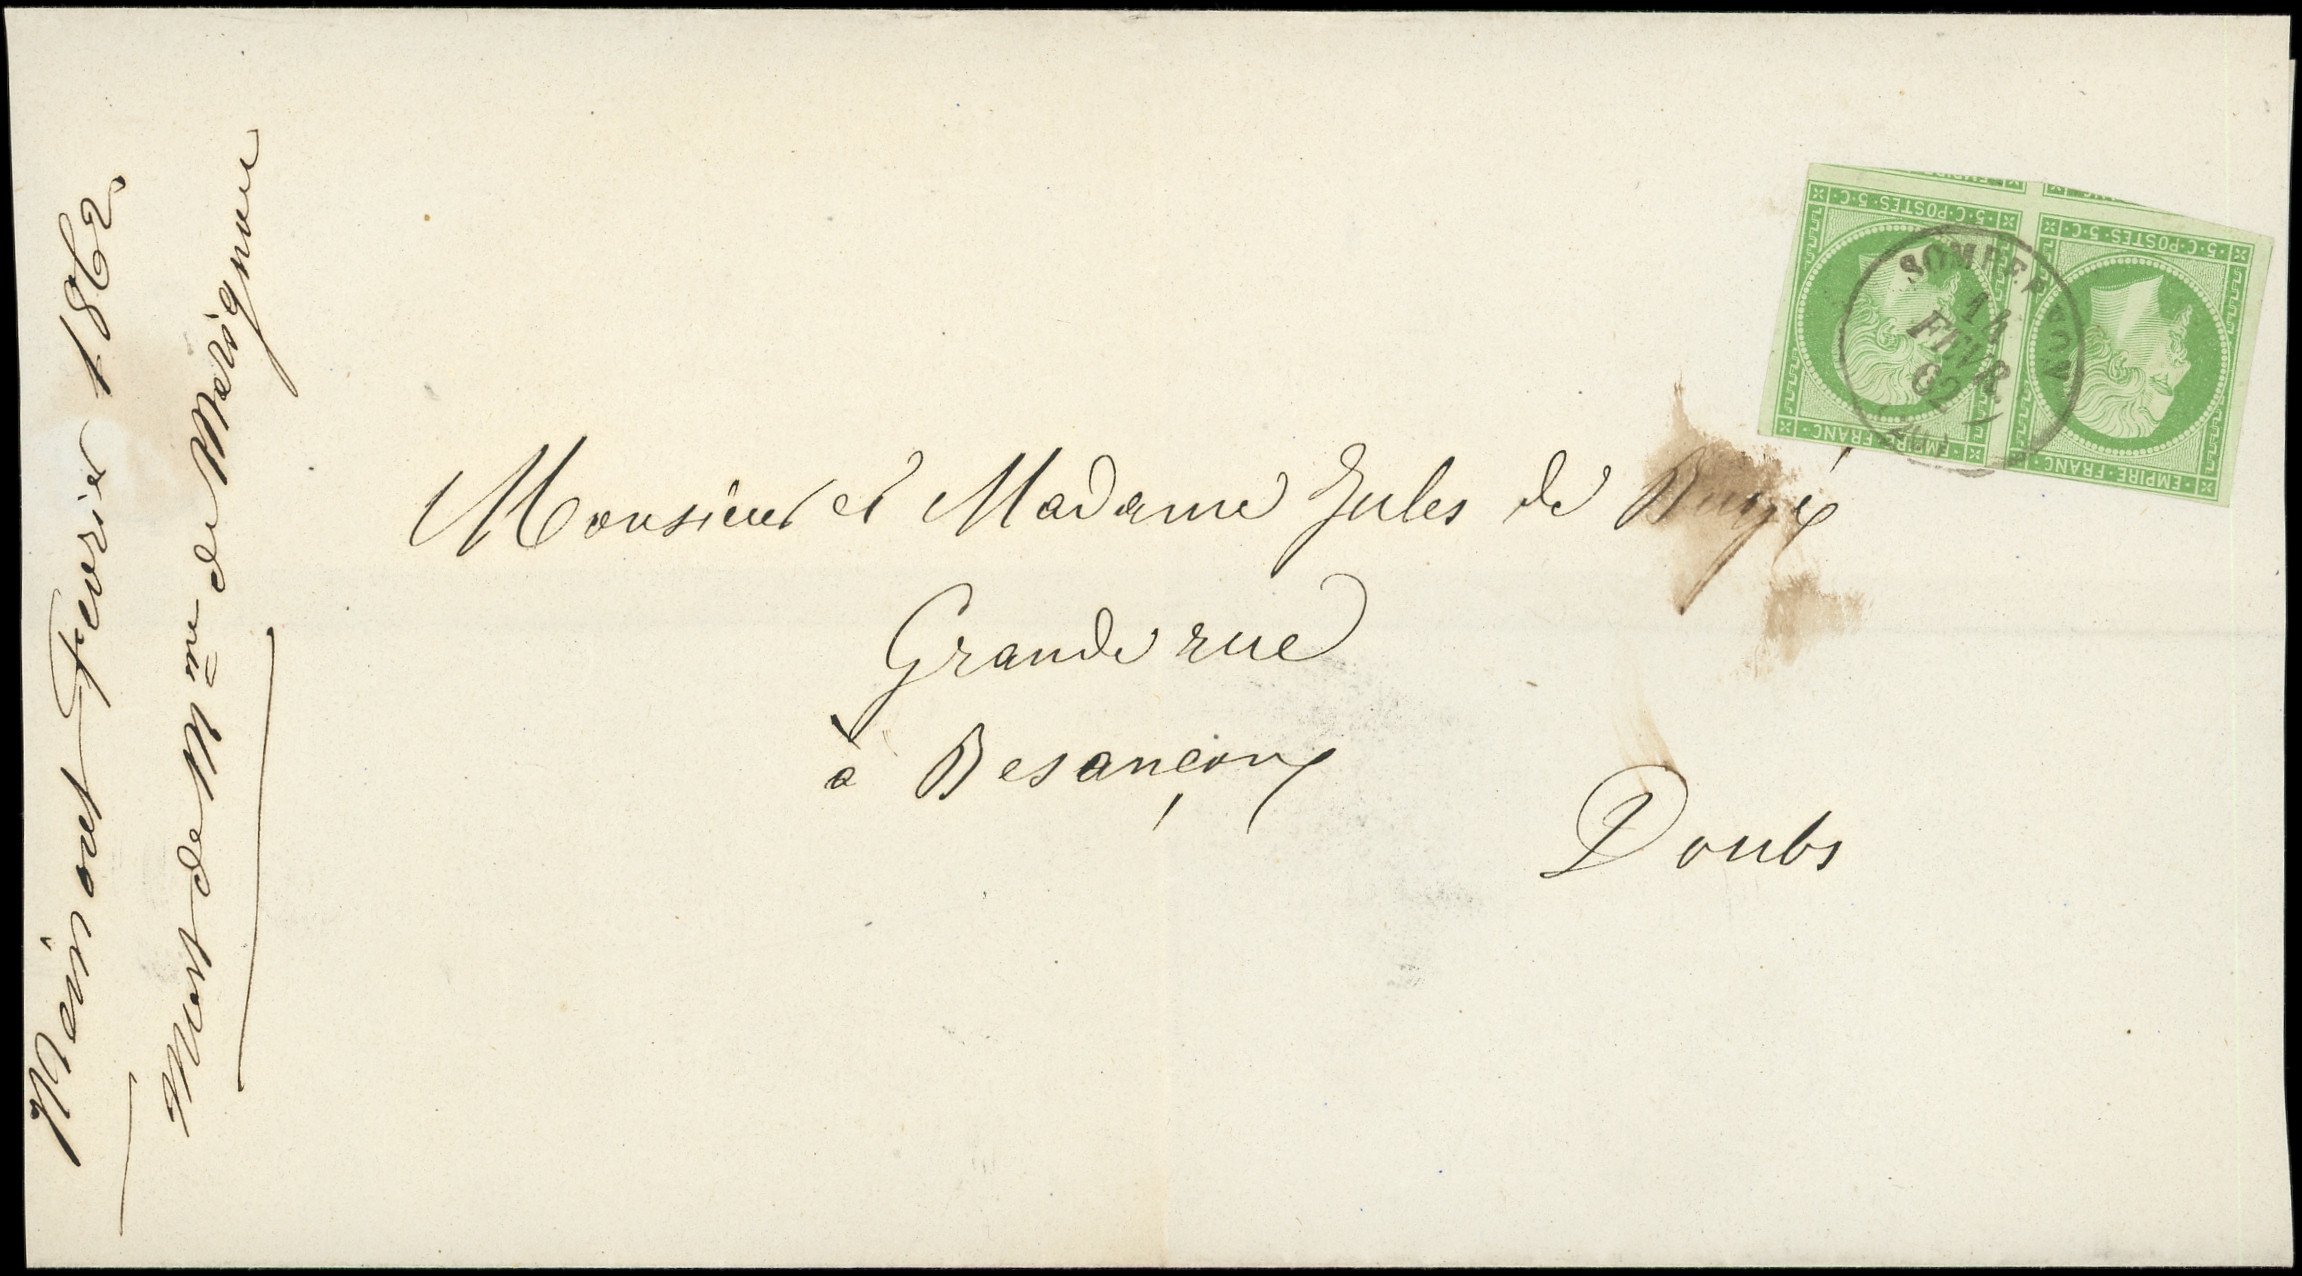 Monsieur et Madame Jules de
Grande rue
à Besançon
Doubs
Février 1862
Mort de Mme de Marignan
5·C·POSTES·5·C·
5·C·POSTES·5·C·
EMPIRE·FRANC·
EMPIRE·FRANC·
SOMBERNON
14
FEVR
62